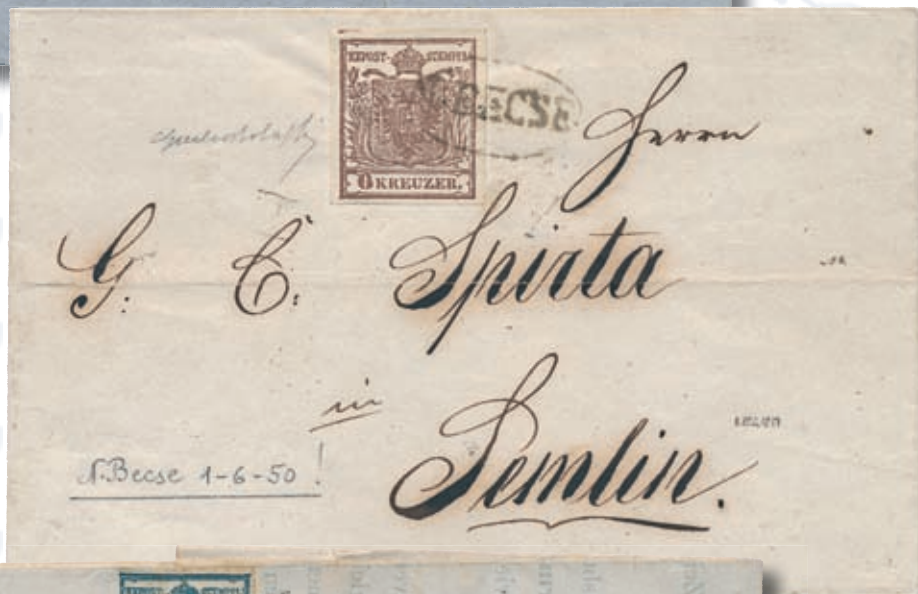 KKPOST-STEMPEL
6 KREUZER.
BECSE
Herrn
G. C. Spirta
in
Semlin.
N. Becse 1-6-50!